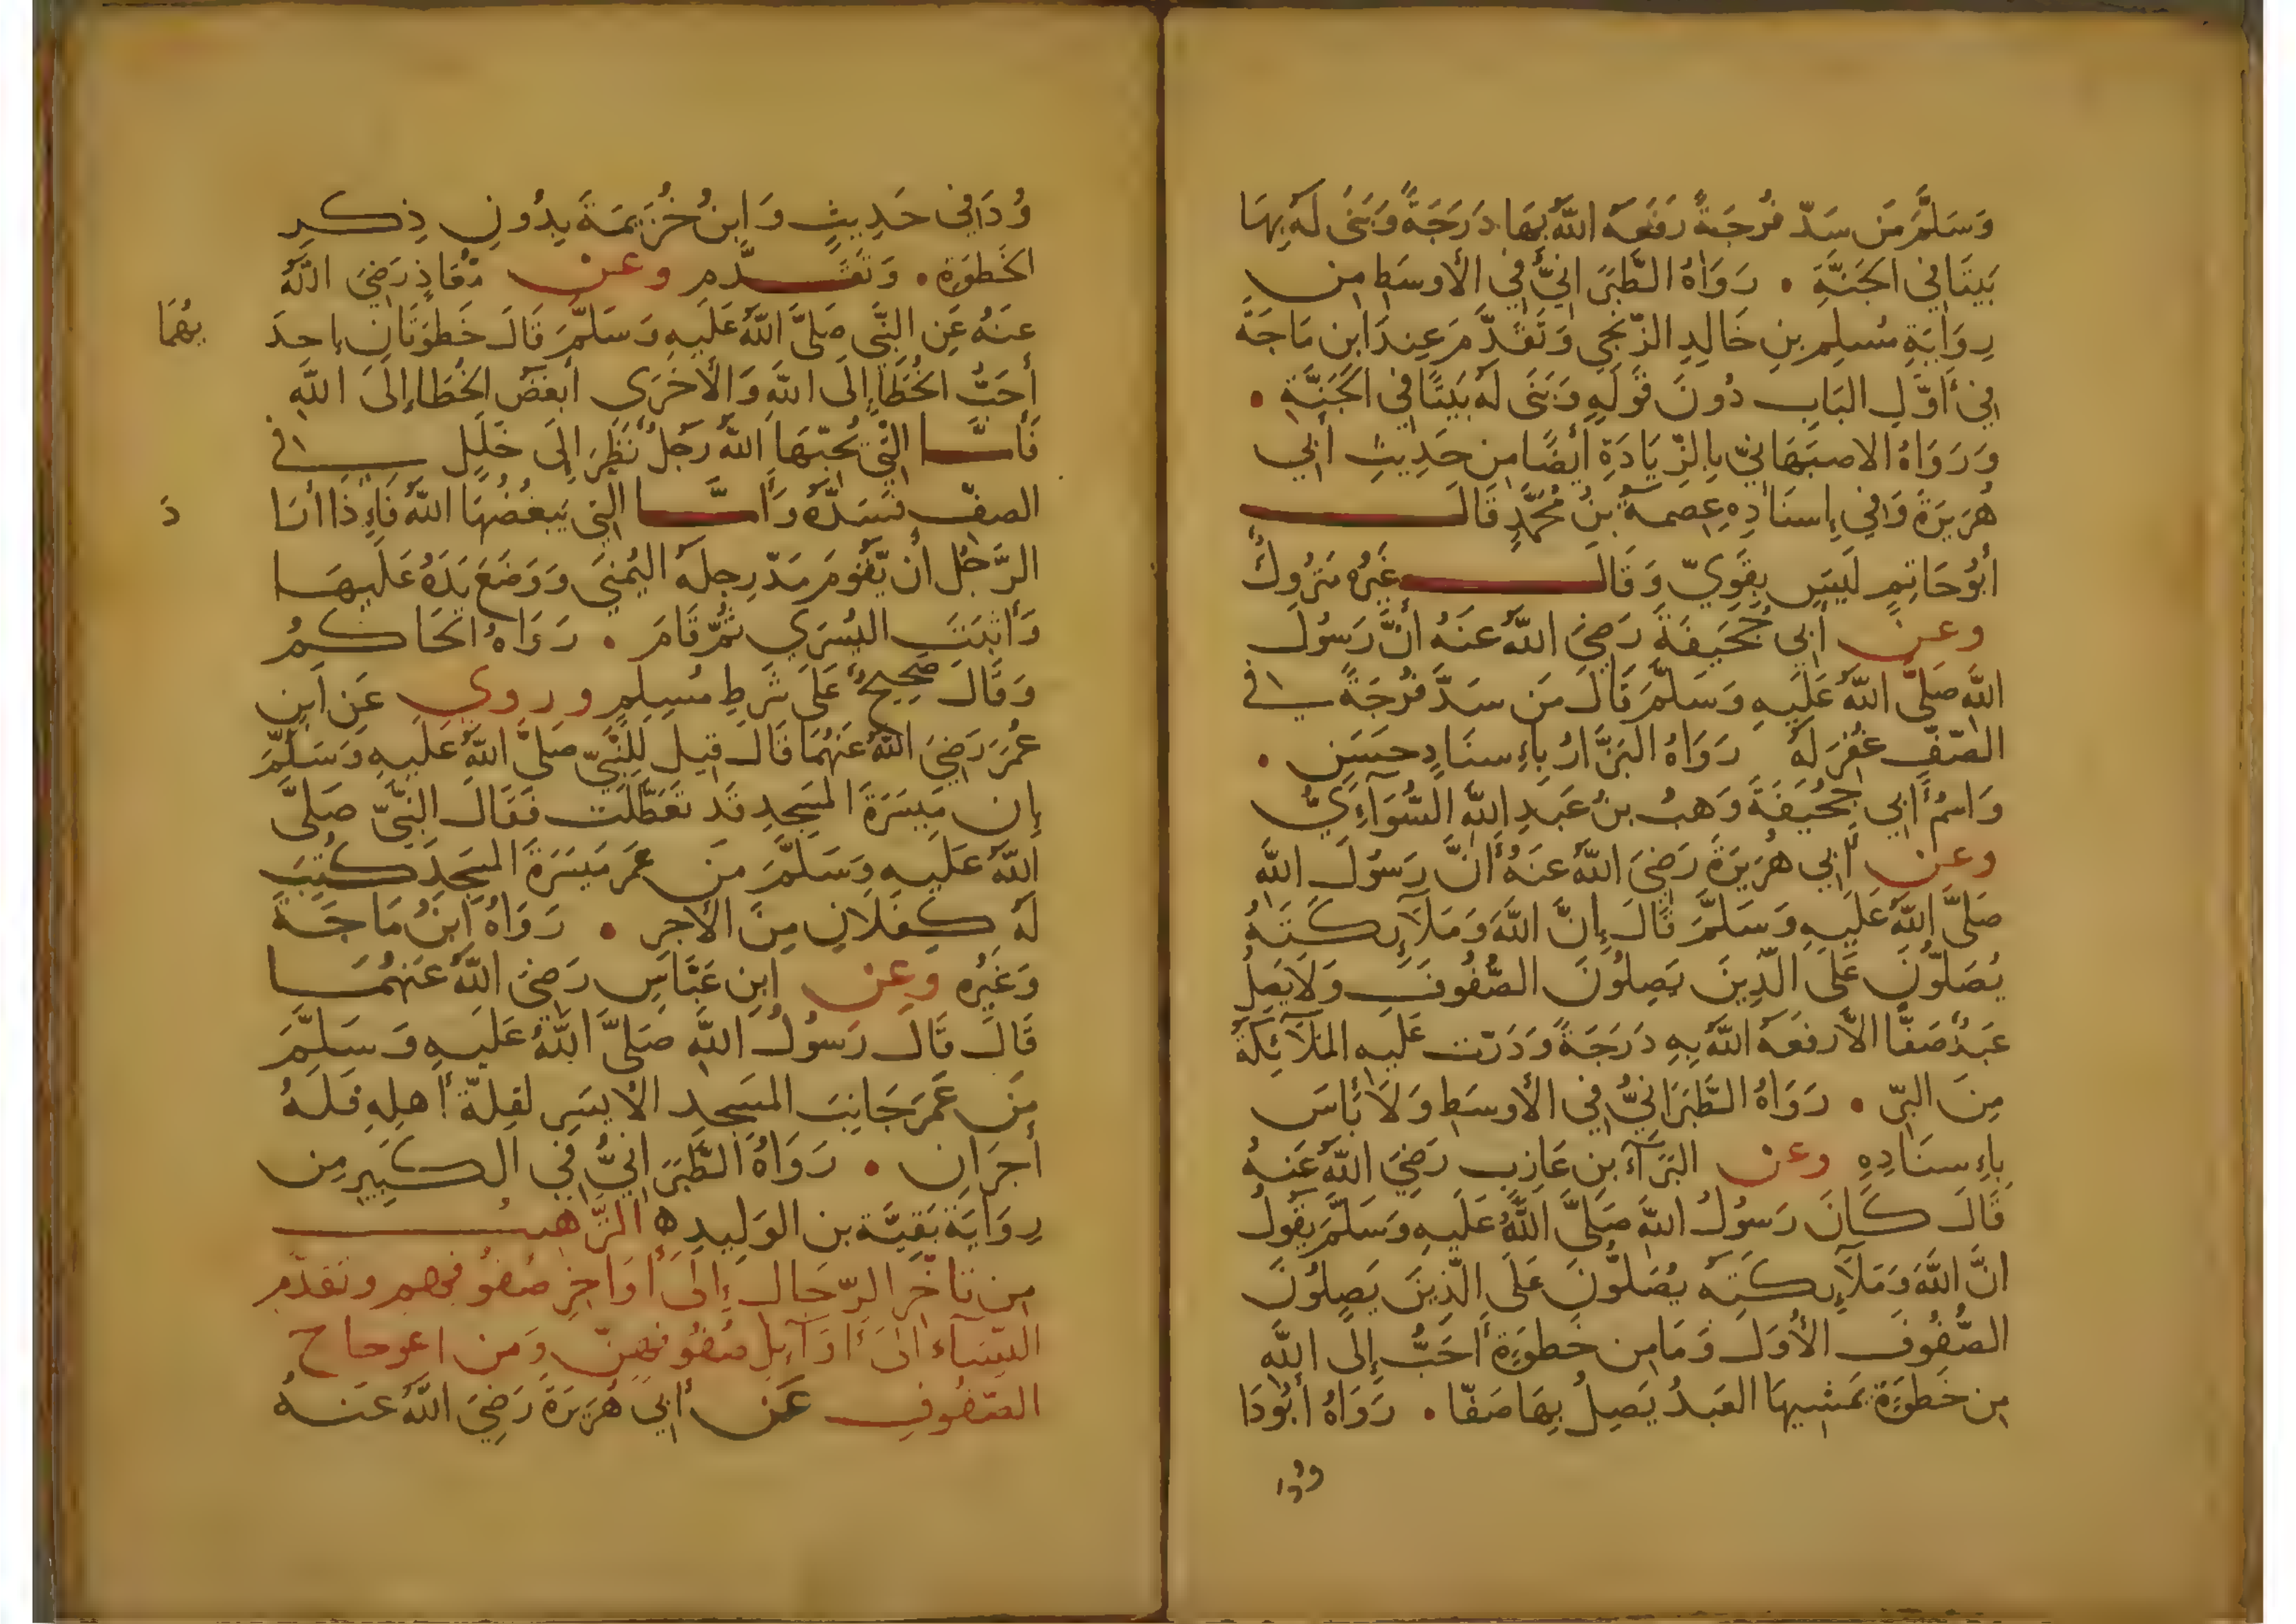 وَسَلَّمَ مَن سَدّ فُرجَةً رَفَعَهُ اللّٰهُ بِهَا دَرَجَةً وَبَنَى لَهُ بِهَا
بَيتًا فِي الجَنَّةِ . رَوَاهُ الطَّبَرَانِيُّ فِي الأَوسَطِ مِن
رِوَايَةِ مُسلِمِ بنِ خَالِدِ الزّنجِي وَتَقَدَّمَ عِندَ ابنِ مَاجَة
فِي أَوَّلِ البَابِ دُونَ قَولِهِ وَبَنَى لَهُ بَيتًا فِي الجَنَّةِ .
وَرَوَاهُ الاصبَهَانِيّ بِالزِّيَادَةِ أيضًا مِن حَدِيثِ أبِي
هُرَيرَةَ وَفِي إِسنَادِهِ عِصمَةُ بنُ مُحَمَّدٍ قَالَ
أبُو حَاتِمٍ لَيسَ بِقَوِيّ وَقَالَ غَيرُهُ مَترُوكٌ
وعن أبِي جُحَيفَةَ رَضِيَ اللّٰهُ عَنهُ أنَّ رَسُولَ
اللّٰهِ صَلَّى اللّٰهُ عَلَيهِ وَسَلَّمَ قَالَ مَن سَدَّ فُرجَةً فِي
الصَّفِّ غُفِرَ لَهُ رَوَاهُ البَزَّارُ بِاِسنَادٍ حَسَنٍ .
وَاسمُ أبِي جُحَيفَةَ وَهبُ بنُ عَبدِ اللّٰهِ السُّوَآءِيُّ
وعن أبِي هُرَيرَةَ رَضِيَ اللّٰهُ عَنهُ أنَّ رَسُولَ اللّٰهِ
صَلَّى اللّٰهُ عَلَيهِ وَسَلَّمَ قَالَ إِنَّ اللّٰهَ وَمَلَآئِكَتَهُ
يُصَلُّونَ عَلَى الَّذِينَ يَصِلُونَ الصُّفُوفَ وَلَا يَصِلُ
عَبدٌ صَفًّا الَّا رَفَعَهُ اللّٰهُ بِهِ دَرَجَةً وَدَرَّت عَلَيهِ المَلَآئِكَةُ
مِنَ البِرِّ . رَوَاهُ الطَّبَرَانِيُّ فِي الأَوسَطِ وَلَا بَأسَ
بِاِسنَادِهِ وعن البَرَآءِ بنِ عَازِبٍ رَضِيَ اللّٰهُ عَنهُ
قَالَ كَانَ رَسُولُ اللّٰهِ صَلَّى اللّٰهُ عَلَيهِ وَسَلَّمَ يَقُولُ
انَّ اللّٰهَ وَمَلَآئِكَتَهُ يُصَلُّونَ عَلَى الَّذِينَ يَصِلُونَ
الصُّفُوفَ الأُوَلَ وَمَا مِن خَطوَةٍ أحَبُّ إِلَى اللّٰهِ
مِن خَطوَةٍ يَمشِيهَا العَبدُ يَصِلُ بِهَا صَفًّا . رَوَاهُ أبُو دَا
وُدَ فِي حَدِيثٍ وَابنُ خُزَيمَةَ بِدُونِ ذِكرِ
الخَطوَةِ . وَتَقَدَّم وعن مُعَاذٍ رَضِيَ اللّٰهُ
عَنهُ عَنِ النَّبِيِّ صَلَّى اللّٰهُ عَلَيهِ وَسَلَّمَ قَالَ خَطوَتَانِ إحدَ
يهُمَا
أحَبُّ الخُطَاإِلَى اللّٰهِ وَالأُخرَى أبغَضُ الخُطَاإِلَى اللّٰهِ
فَأَمَّا الَّتِي يُحِبُّهَا اللّٰهُ رَجُلٌ نَظَرَ إِلَى خَلَلٍ فِي
الصفِّ فَسَدَّهُ وَأَمَّا الَّتِي يَبغُضُهَا اللّٰهُ فَاِذَا أرَا
دَ
الرَّجُلُ أن يَّقُومَ مَدّ رِجلَهُ اليُمنَى وَوَضَعَ يَدَهُ عَلَيهَا
وَأثبَتَ اليُسرَى ثُمَّ قَامَ . رَوَاهُ الحَاكِمُ
وَقَالَ صَحِيحٌ عَلَى شَرطِ مُسلِمٍ وروي عَنِ ابنِ
عُمَرَ رَضِيَ اللّٰهُ عَنهُمَا قَالَ قِيلَ لِلنَّبِيِّ صَلَّى اللّٰهُ عَلَيهِ وَسَلَّمَ
إن مَيسَرَةَ المَسجِدِ قَد تَعَطَّلَت فَقَالَ النَّبِيُّ صَلَّى
اللّٰهُ عَلَيهِ وَسَلَّمَ مَن عَمرَ مَيسَرَةَ المَسجِدِ كُتِبَ
لَهُ كِفلَانِ مِنَ الأَجرِ . رَوَاهُ ابنُ مَاجَة
وَغَيرُه وَعن ابنِ عَبَّاسٍ رَضِيَ اللّٰهُ عَنهُمَا
قَالَ قَالَ رَسُولُ اللّٰهِ صَلَّى اللّٰهُ عَلَيهِ وَسَلَّمَ
مَن عَمرَ جَانِبَ المَسجِدِ الأَيسَرِ لِقِلَّةِ أهلِهِ فَلَهُ
أجرَانِ . رَوَاهُ الطَّبَرَانِيُّ فِي الكَبِيرِ مِن
رِوَايَةِ بَقِيَّة بن الوَلِيدِ ه التَّرهِيبُ
مِن تَأَخُّرِ الرِّجَالِ إِلَى أوَاخِرِ صُفُوفِهِم وَتَقَدُّمِ
النِّسَآءِ الَى أوَآئِلِ صُفُوفِهِنّ وَمن اعوجاج
الصّفُوفِ عَن أبِي هُرَيرَةَ رَضِيَ اللّٰهُ عَنهُ